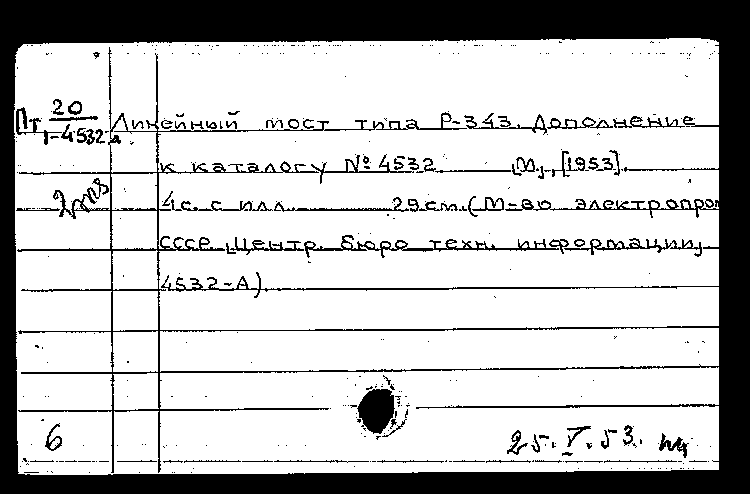 Пт 20
1-4532а
2 экз
Линейный мост типа Р-343. Дополнение
к каталогу № 4532. [М], [1953].
4 с. с илл. 29 см. (М-во электропром
СССР. [Центр. бюро техн. информации]
4532-А).
6
25.V.53.